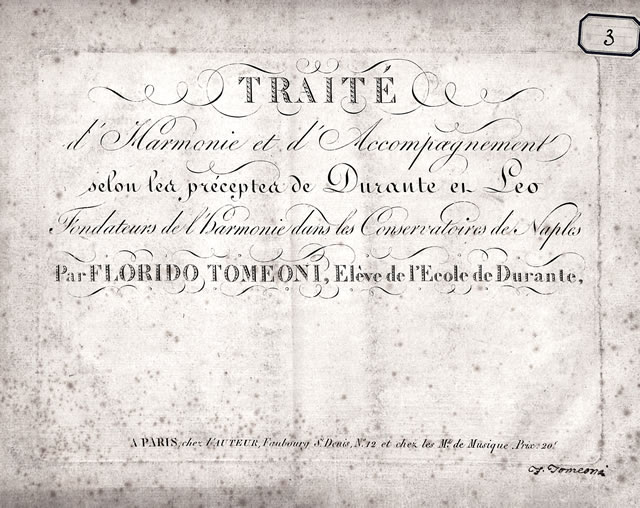 3
TRAITÉ
d'Harmonie et d'Accompagnement
selon les préceptes de Durante et Leo
Fondateurs de l'harmonie dans les Conservatoires de Naples
Par FLORIDO TOMEONI, Elève de l'Ecole de Durante,
A PARIS, chez l'AUTEUR, Faubourg St. Denis, No. 12 et chez les Mds. de Musique. Prix 20f
F. Tomeoni